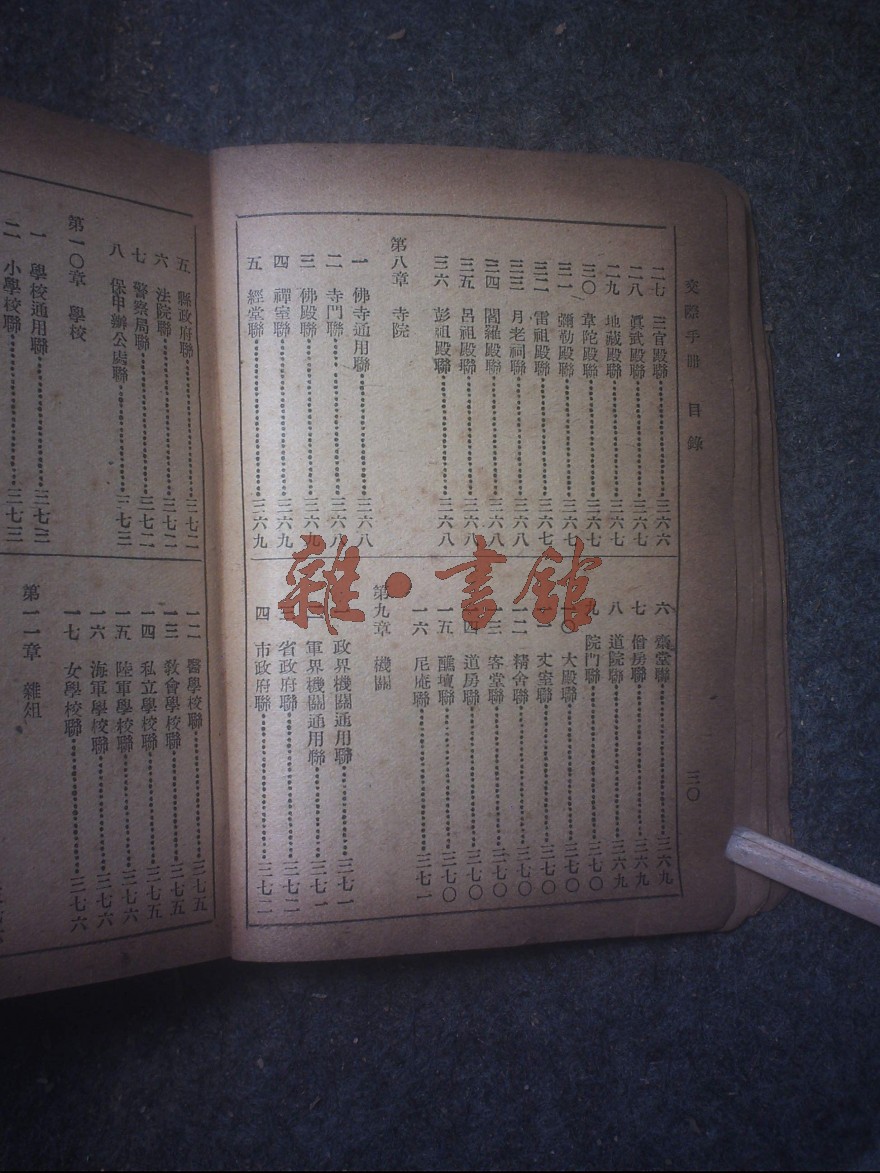 交際手册 目錄
三〇
二七 三官殿聯三六六
二八 眞武殿聯三六七
二九 地藏殿聯三六七
三〇 韋陀殿聯三六七
三一 彌勒殿聯三六七
三二 雷祖殿聯三六七
三三 月老祠聯三六八
三四 閻羅殿聯三六八
三五 呂祖殿聯三六八
三六 彭祖殿聯三六八
第八章 寺院
一 佛寺通用聯三六八
二 寺門聯三六八
三 佛殿聯三六九
四 禪室聯三六九
五 經堂聯三六九
六 齋堂聯三六九
七 僧房聯三六九
八 道院聯三六九
九 院門聯三七〇
一〇 大殿聯三七〇
一一 丈室聯三七〇
一二 精舍聯三七〇
一三 客堂聯三七〇
一四 道房聯三七〇
一五 醮壇聯三七〇
一六 尼庵聯三七一
第九章 機關
一 政界機關通用聯三七一
二 軍界機關通用聯三七一
三 省政府聯三七二
四 市政府聯三七二
五 縣政府聯三七二
六 法院聯三七二
七 警察局聯三七二
八 保甲辦公處聯三七三
第一〇章 學校
一 學校通用聯三七三
二 小學校聯三七三
一二 醫學校聯三七五
一三 敎會學校聯三七五
一四 私立學校聯三七五
一五 陸軍學校聯三七六
一六 海軍學校聯三七六
一七 女學校聯三七六
第一一章 雜俎
雜·書館